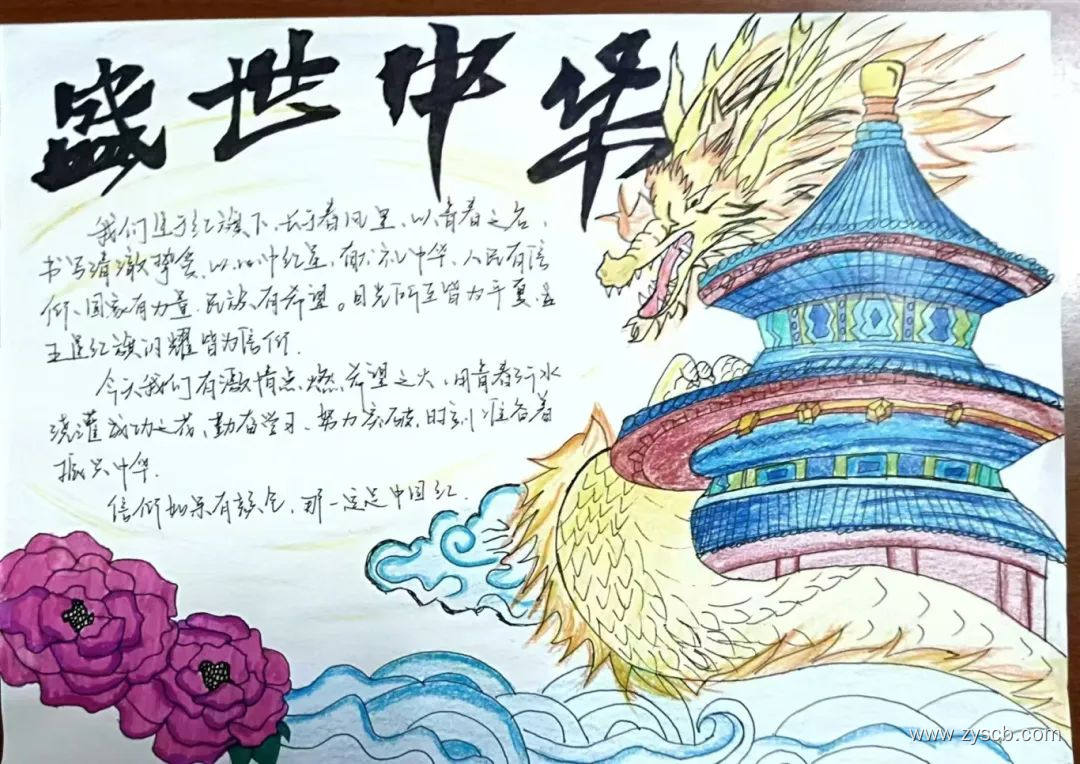 盛世中华
我们生于红旗下、长于春风里、以青春之名、
书写清澈挚爱、以心中红星、献礼中华、人民有信
仰、国家有力量、民族有希望。目光所至皆为华夏、五
星红旗闪耀皆为信仰.
今天我们有激情点燃希望之火、用青春汗水
浇灌成功之花、勤奋学习、努力突破、时刻准备着
振兴中华.
信仰如果有颜色、那一定是中国红.
www.zyscb.com